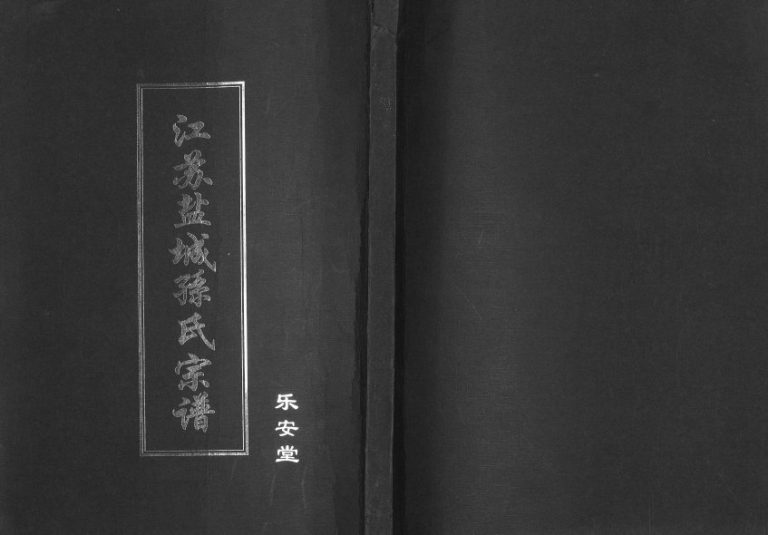 江苏盐城孫氏宗谱
乐安堂